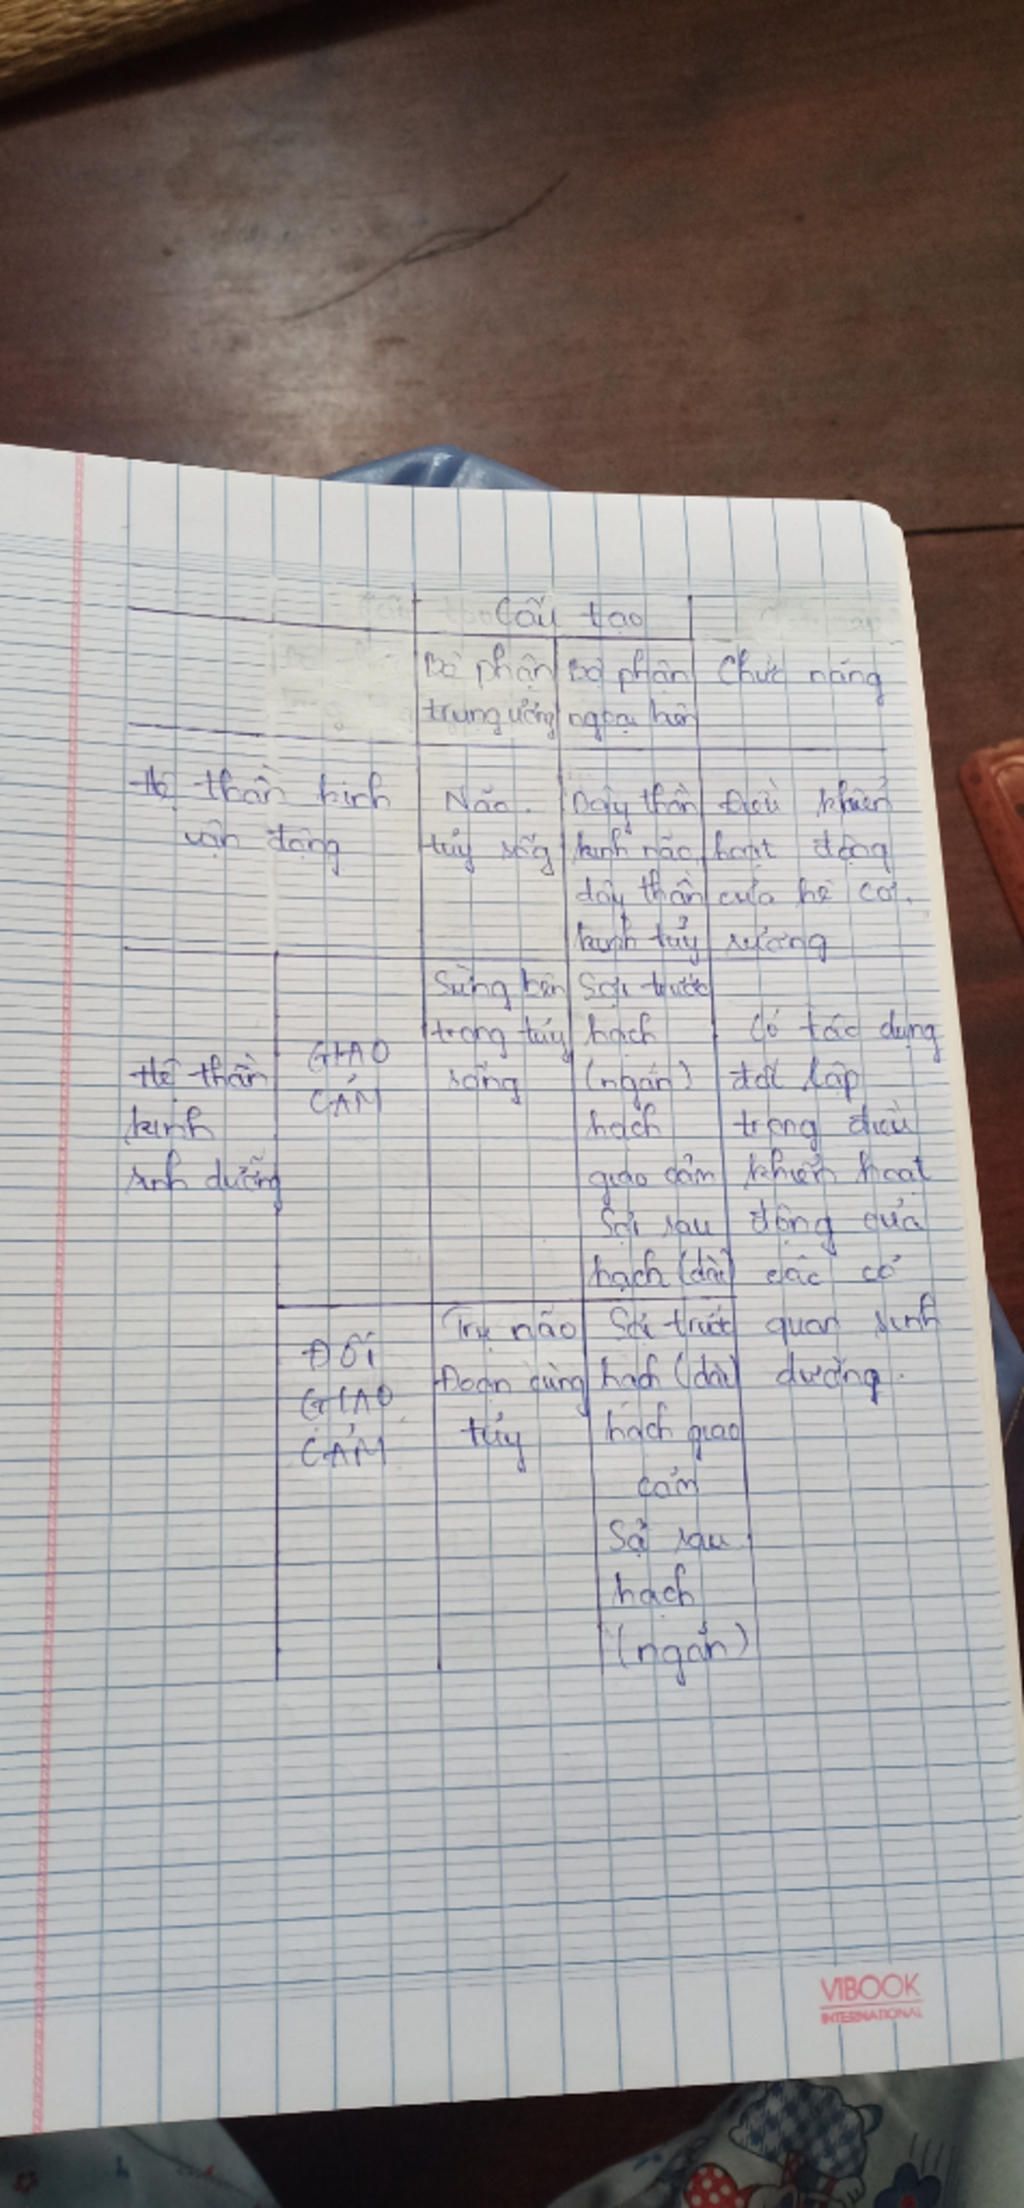 Cấu tạo
Bộ phận
trung ương
Bộ phận
ngoại biên
Chức năng
Hệ thần kinh
vận động
Não.
tủy sống
Dây thần
kinh não,
dây thần
kinh tủy
Điều khiển
hoạt động
của hệ cơ.
xương
Hệ thần
kinh
sinh dưỡng
GIAO
CẢM
Sừng bên
trong tủy
sống
Sợi trước
hạch
(ngắn)
hạch
giao cảm
Sợi sau
hạch (dài)
Có tác dụng
đối lập
trong điều
khiển hoạt
động của
các cơ
quan sinh
dưỡng.
ĐỐI
GIAO
CẢM
Trụ não
Đoạn cùng
tủy
Sợi trước
hạch (dài)
hạch giao
cảm
Sợi sau
hạch
(ngắn)
VIBOOK
INTERNATIONAL